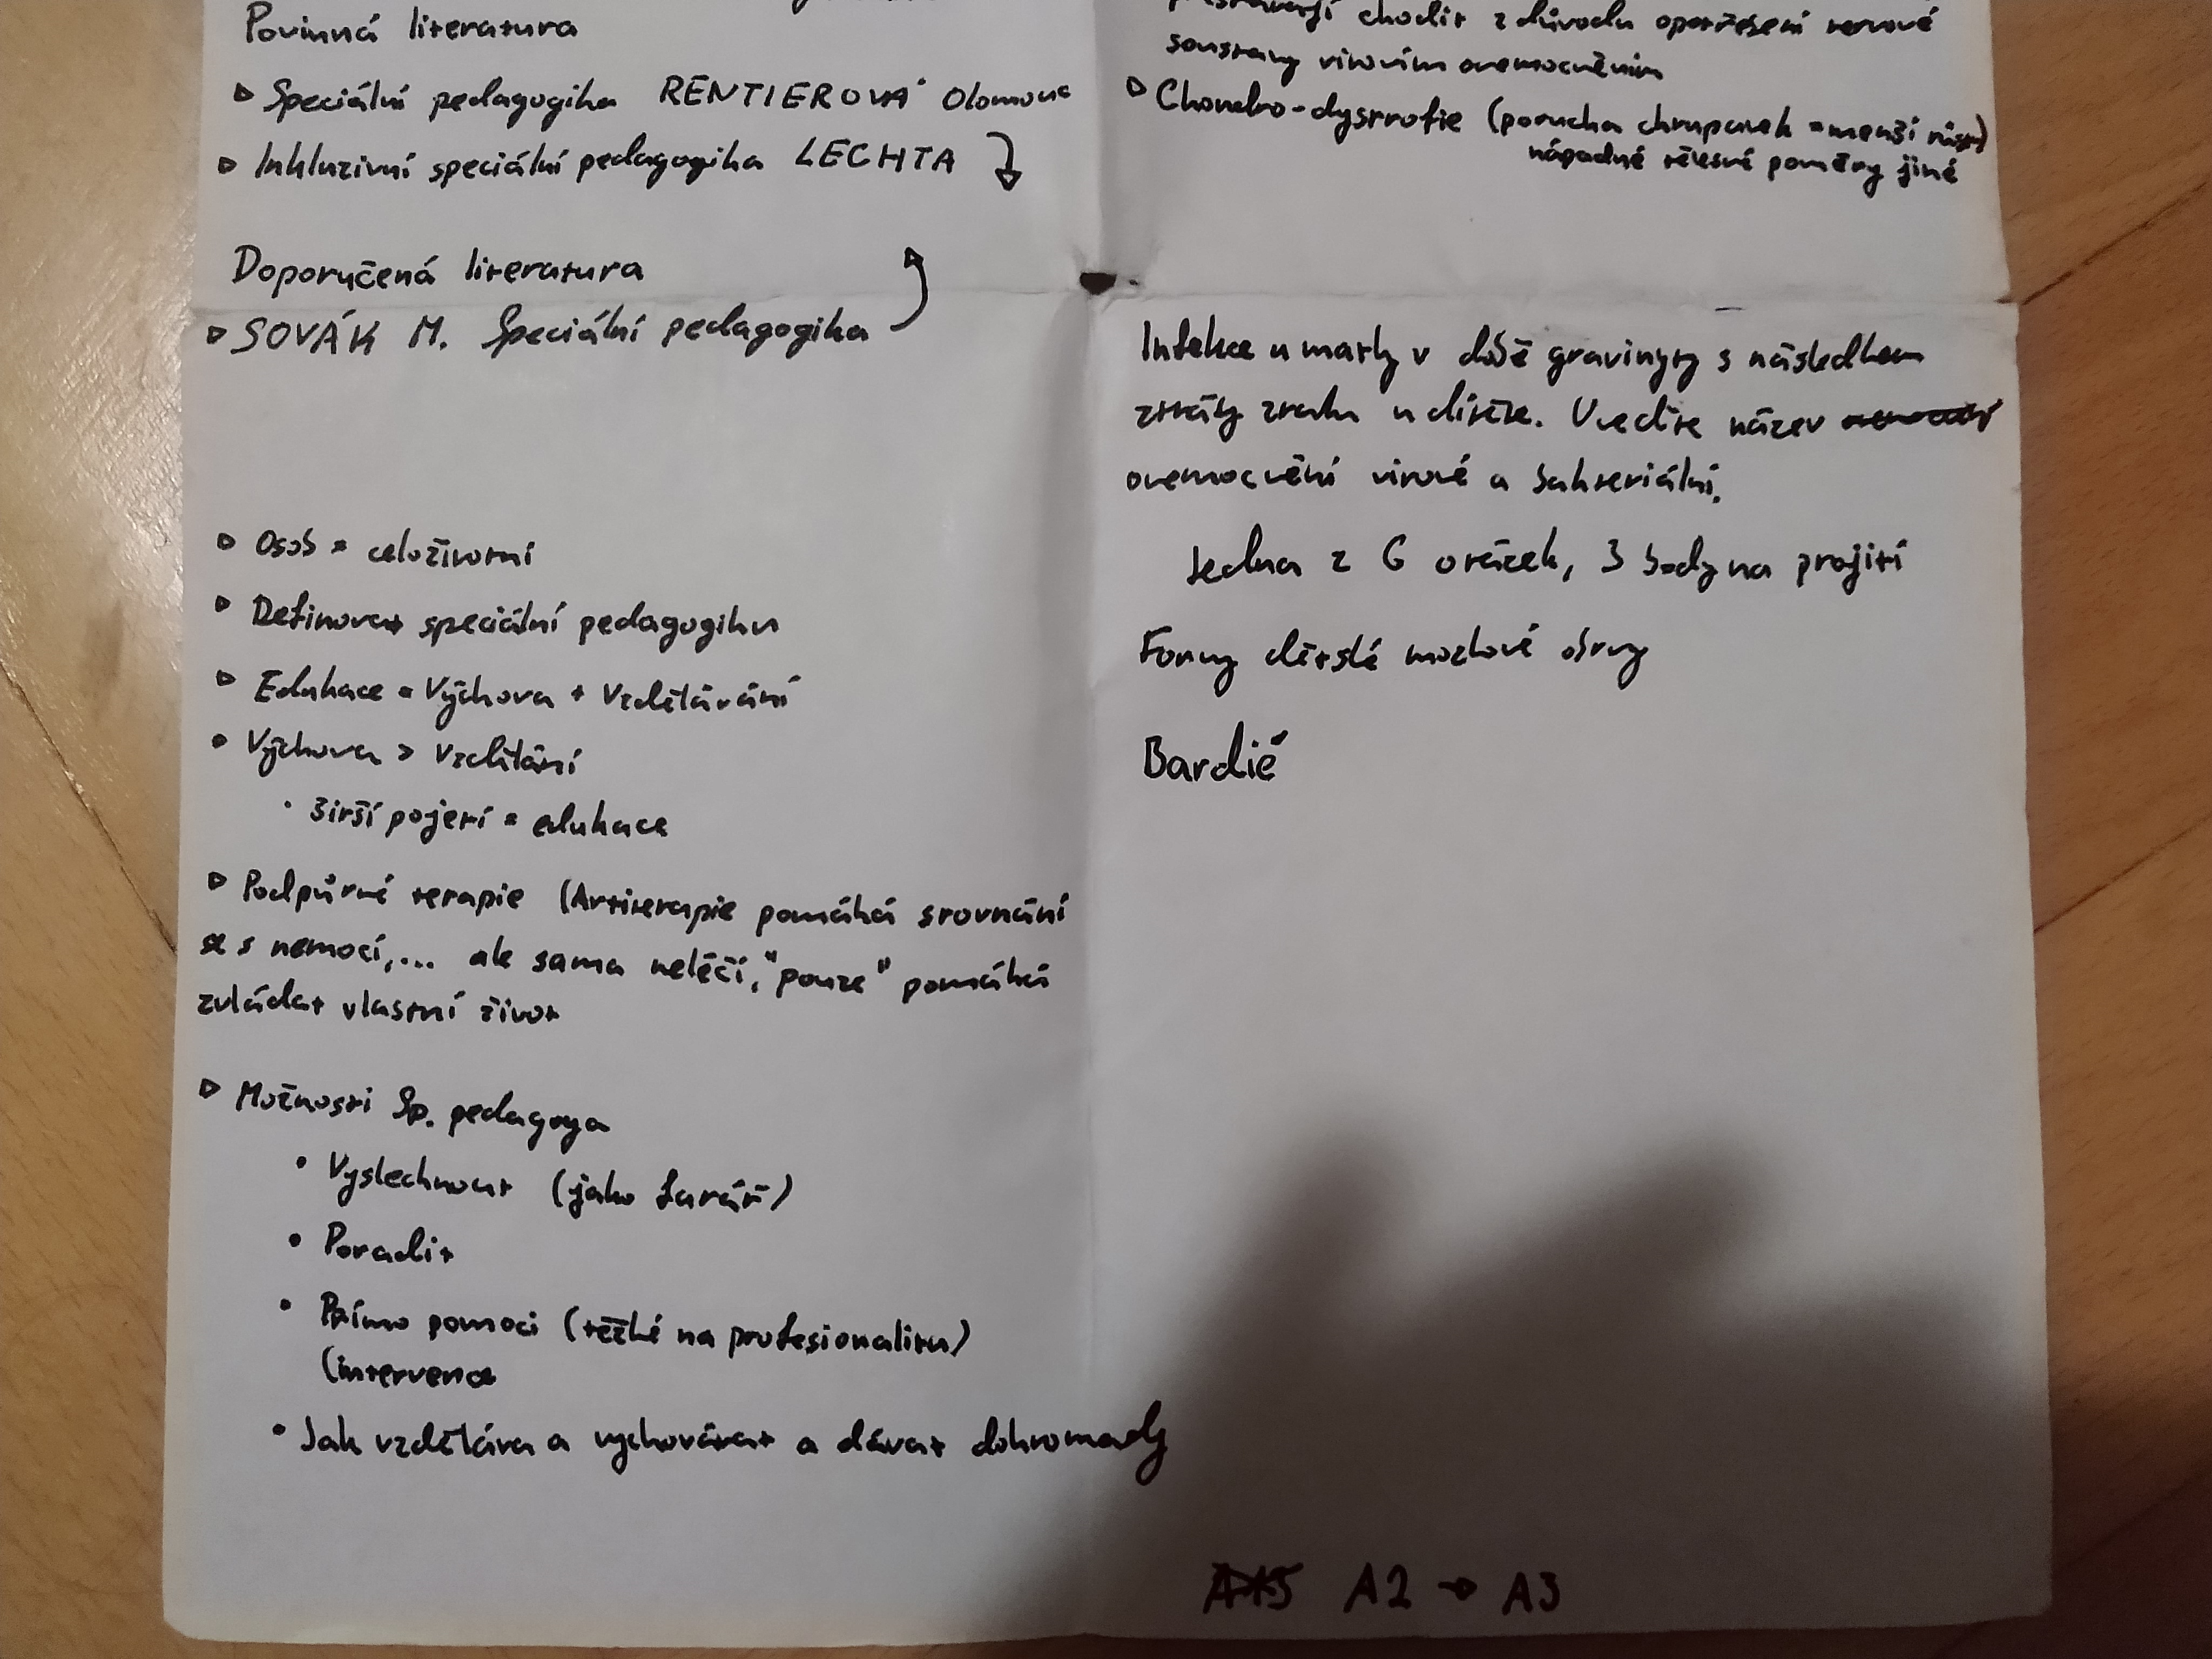 Povinná literatura
▷ Speciální pedagogika RENTIEROVÁ Olomouc
▷ Inkluzivní speciální pedagogika LECHTA
Doporučená literatura
▷ SOVÁK M. Speciální pedagogika
▷ Osob = celoživotní
▷ Definovat speciální pedagogiku
▷ Edukace = Výchova + Vzdělávání
• Výchova > Vzdělání
• širší pojetí = edukace
▷ Podpůrné terapie (Artiterapie pomáhá srovnání
se s nemocí,... ale sama neléčí, "pouze" pomáhá
zvládat vlastní život
▷ Možnosti Sp. pedagoga
• Vyslechnout (jako farář)
• Poradit
• Přímo pomoci (těžké na profesionalitu)
(intervence
• Jak vzděláva a vychovávat a dávat dohromady
chodit z důvodu opotřebení nervové
soustavy virovím onemocněním
▷ Chondro-dystrofie (porucha chrupavek = menší růst)
nápadně tělesné poměry jiné
Infekce u matky v době gravinyty s následkem
ztráty zraku u dítěte. Uveďte název
onemocnění virové a bakteriální.
Jedna z 6 otázek, 3 body na projití
Formy dětské mozkové obrny
Bardié
A2 → A3